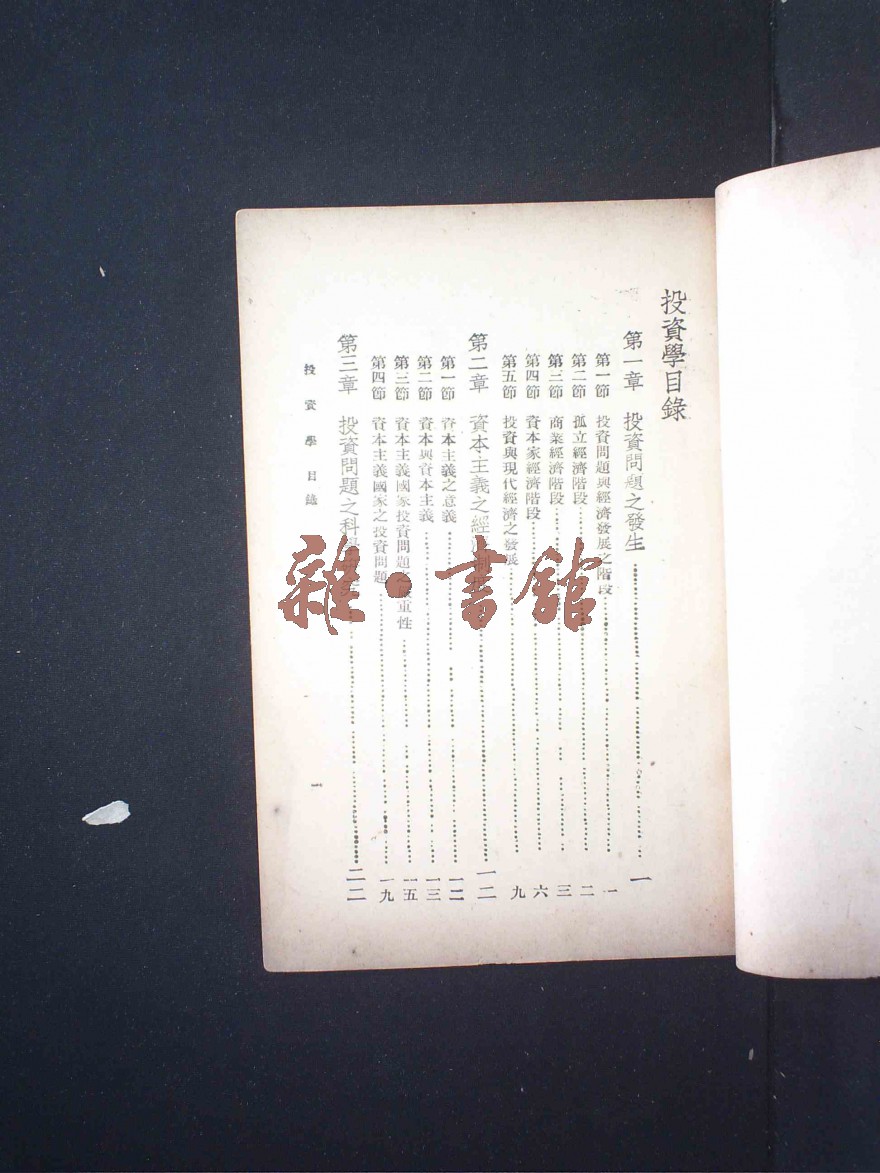 投資學目錄
第一章 投資問題之發生 一
第一節 投資問題與經濟發展之階段 一
第二節 孤立經濟階段 二
第三節 商業經濟階段 三
第四節 資本家經濟階段 六
第五節 投資與現代經濟之發展 九
第二章 資本主義之經濟制 一二
第一節 資本主義之意義 一二
第二節 資本與資本主義 一三
第三節 資本主義國家投資問題之嚴重性 一五
第四節 資本主義國家之投資問題 一九
第三章 投資問題之科學 二二
投資學目錄
一
雜·書館